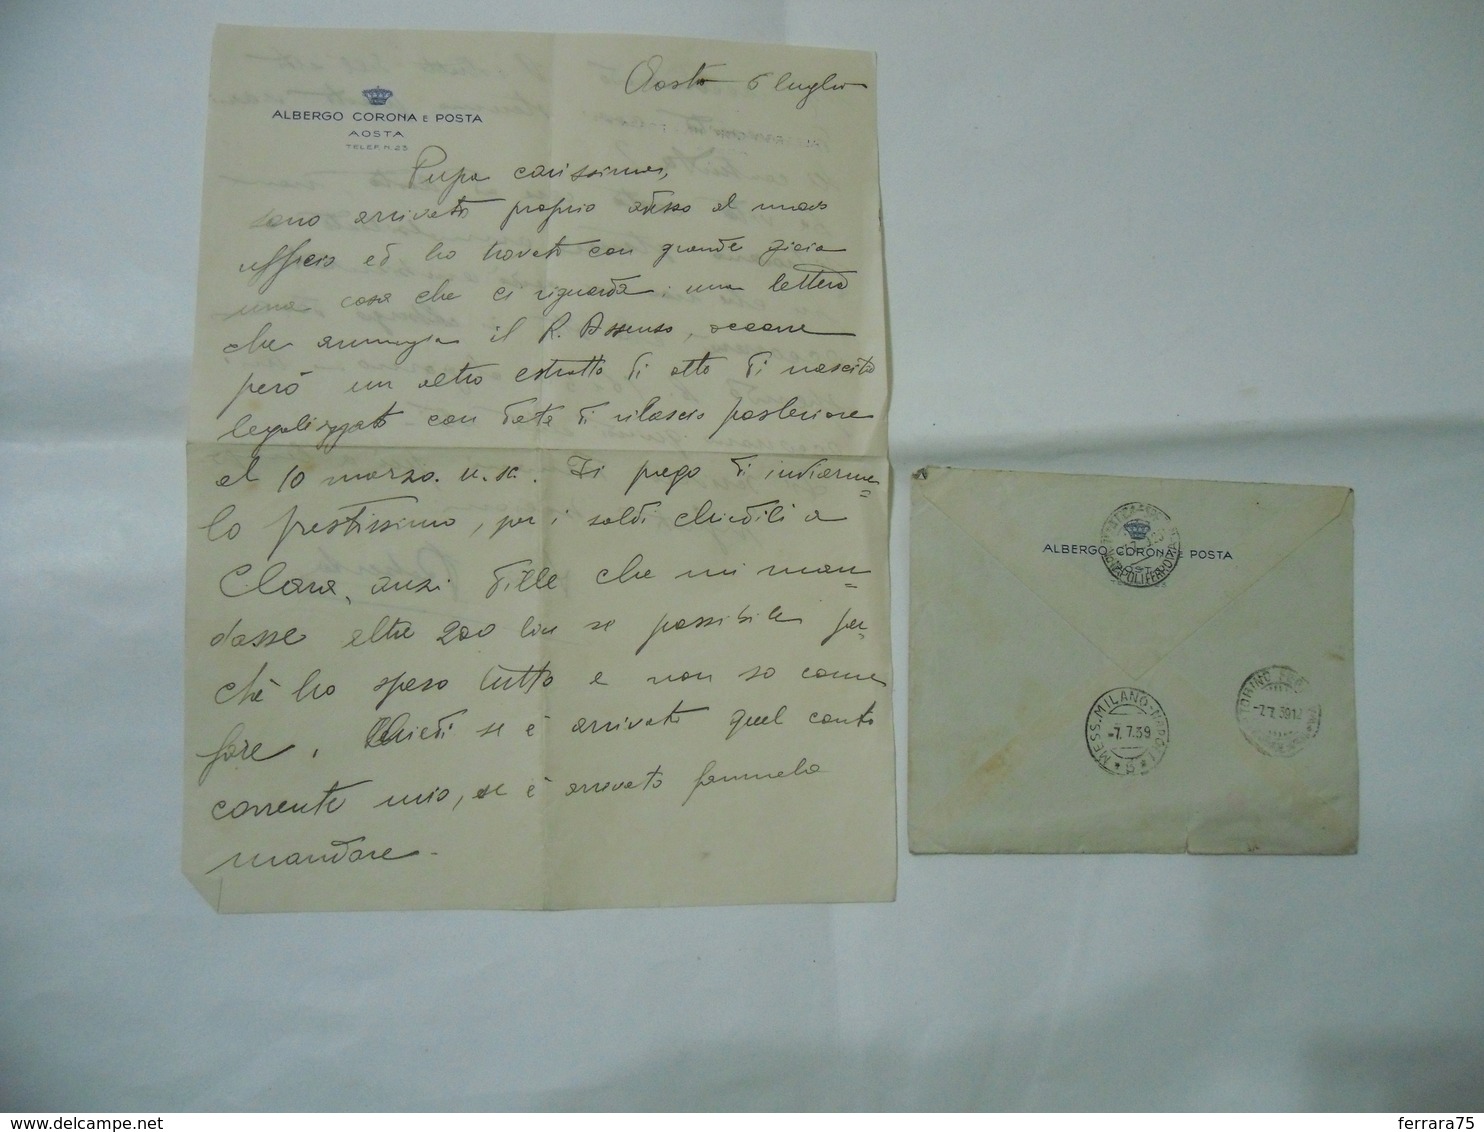 ALBERGO CORONA E POSTA
AOSTA
TELEF. N. 23
Aosta 6 luglio
Pupa carissima,
sono arrivato proprio adesso al mio
ufficio ed ho trovato con grande gioia
una cosa che ci riguarda: una lettera
che annunzia il R. Assenso, occorre
però un altro estratto di atto di nascita
legalizzato con data di rilascio posteriore
al 10 marzo u. sc. Ti prego di inviarme=
lo prestissimo, per i soldi chiedili a
Clara, anzi dille che mi man=
dasse altre 200 lire se possibile per=
chè ho speso tutto e non so come
fare. Chiedi se è arrivato quel conto
corrente mio, se è arrivato fammelo
mandare -
ALBERGO CORONA E POSTA
MESS. MILANO-NAPOLI
-7.7.39
* 5 *
TORINO
-7.7.39 12
ferrara75